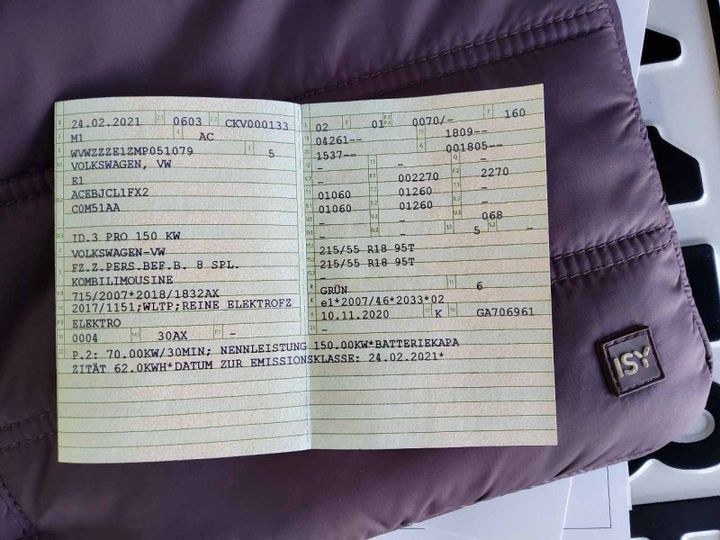 24.02.2021 0603 CKV000133
M1 AC
WVWZZZE1ZMP051079 5
VOLKSWAGEN, VW
E1
ACEBJCL1FX2
C0M51AA
ID.3 PRO 150 KW
VOLKSWAGEN-VW
FZ.Z.PERS.BEF.B. 8 SPL.
KOMBILIMOUSINE
715/2007*2018/1832AX
2017/1151;WLTP;REINE ELEKTROFZ
ELEKTRO
0004 30AX -
P.2: 70.00KW/30MIN; NENNLEISTUNG 150.00KW*BATTERIEKAPA
ZITÄT 62.0KWH*DATUM ZUR EMISSIONSKLASSE: 24.02.2021*
02 01 0070/- 160
04261-- 1809--
1537-- 001805--
- - -
- 002270 2270
01060 01260 -
01060 01260 -
- - 068
- 5 -
215/55 R18 95T
215/55 R18 95T
-
GRÜN 6
e1*2007/46*2033*02
10.11.2020 K GA706961
-
ISY